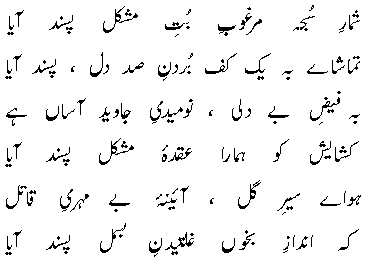 شمارِ سُبحہ مرغوبِ بُتِ مشکل پسند آیا
تماشاے بہ یک کف بُردنِ صد دل ، پسند آیا
بہ فیضِ بے دلی ، نومیدیِ جاوید آساں ہے
کشایش کو ہمارا عقدۂ مشکل پسند آیا
ہواے سیرِ گل ، آئینۂ بے مہریِ قاتل
کہ اندازِ بخوں غلتیدنِ بسمل پسند آیا